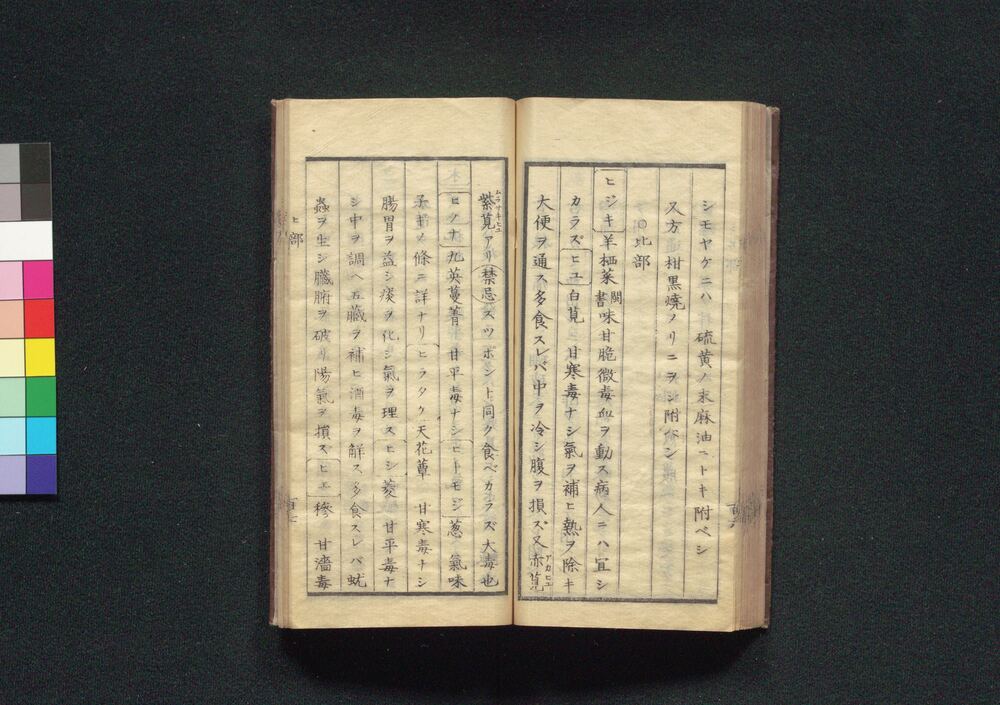 シモヤケニハ 硫黄ノ末麻油ニトキ附ベシ
又方 柑黒焼ノリニヲシ附ベシ
○比部
ヒジキ 羊栖菜 閩書 味甘脆微毒血ヲ動ス病人ニハ宜シ
カラズ ヒユ 白莧 甘寒毒ナシ氣ヲ補ヒ熱ヲ除キ
大便ヲ通ス多食スレバ中ヲ冷シ腹ヲ損ズ又赤莧アカヒユ
紫莧ムラサキヒユアリ 禁忌 スツポント同ク食ベカラズ大毒也
ヒノナ 九英蔓菁 甘平毒ナシ ヒトモジ 葱 氣味
子ギノ條ニ詳ナリ ヒラタケ 天花蕈 甘寒毒ナシ
腸胃ヲ益シ痰ヲ化シ氣ヲ理ス ヒシ 菱 甘平毒ナ
シ中ヲ調ヘ五臓ヲ補ヒ酒毒ヲ解ス多食スレバ蚘
蟲ヲ生シ臓腑ヲ破リ陽氣ヲ損ス ヒエ 穇 甘濇毒
ヒ部